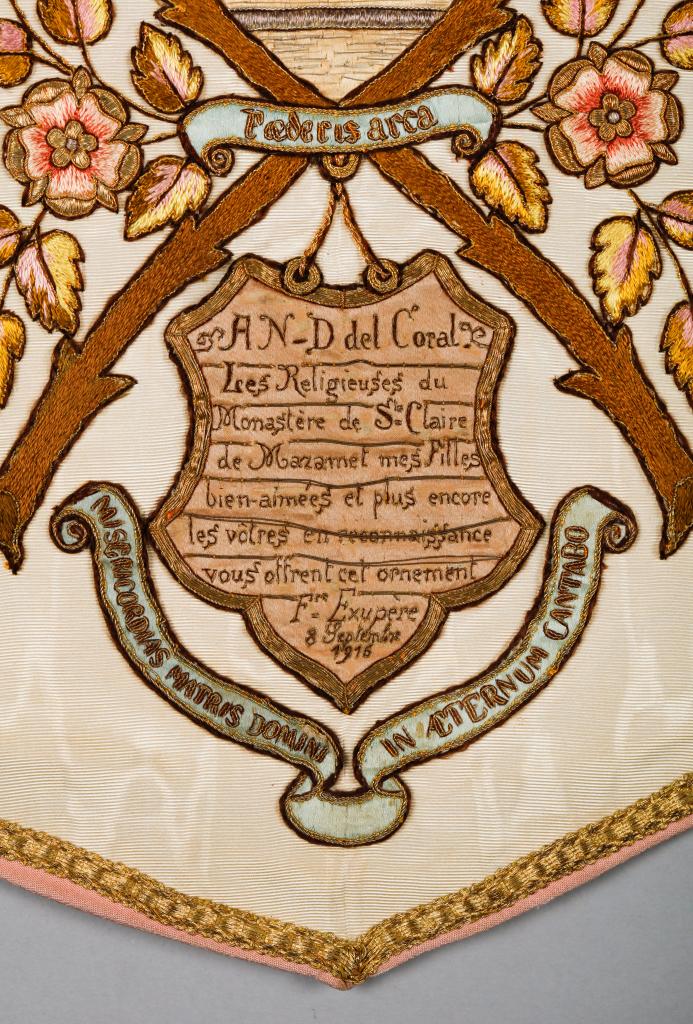 Fœderis arca
A N-D del Coral
Les Religieuses du
Monastère de Ste Claire
de Mazamet mes Filles
bien-aimées et plus encore
les vôtres en reconnaissance
vous offrent cet ornement
Fre Exupère
8 Septembre
1916
MISERICORDIAS MATRIS DOMINI
IN ÆTERNUM CANTABO